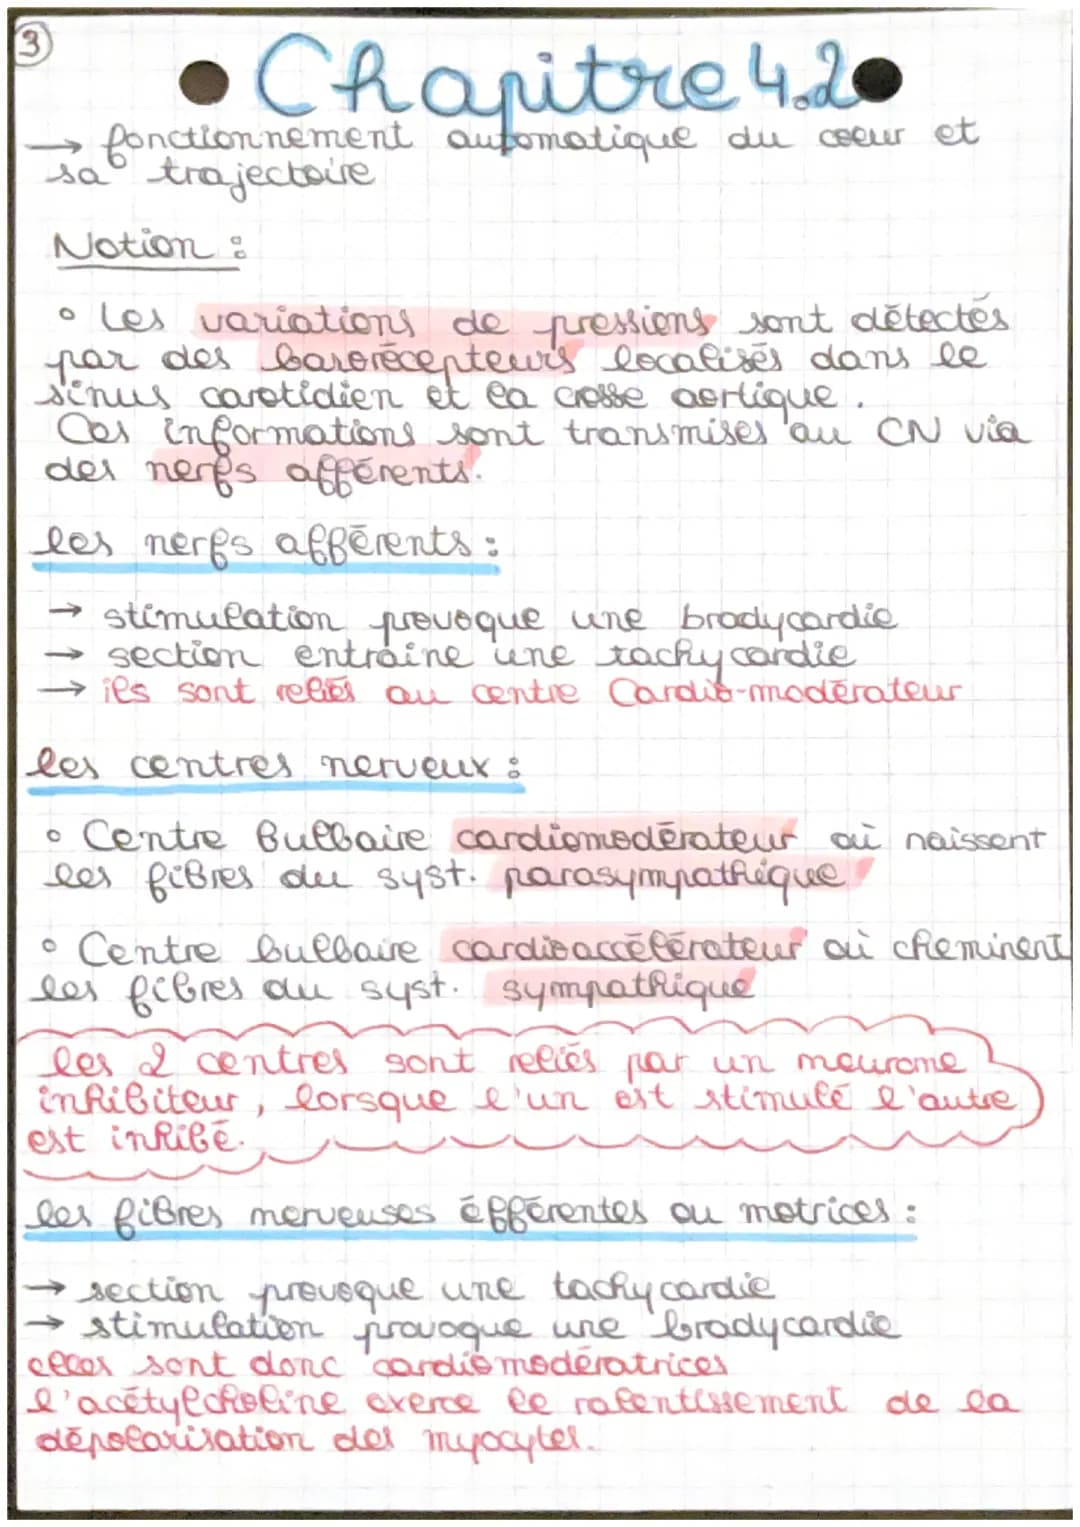 3
Chapitre 4.2
→ fonctionnement automatique du coeur et
sa trajectoire
Notion :
° Les variations de pressions sont détectés
par des barorécepteurs localisés dans le
sinus carotidien et la crosse aortique.
Ces informations sont transmises au CN via
des nerfs afférents.
les nerfs afférents :
→ stimulation provoque une bradycardie
→ section entraine une tachycardie
→ ils sont reliés au centre Cardio-modérateur
les centres nerveux :
° Centre Bulbaire cardiomodérateur où naissent
les fibres du syst. parasympathique
° Centre bulbaire cardioaccélérateur où cheminent
les fibres du syst. sympathique
les 2 centres sont reliés par un neurone
inhibiteur, lorsque l'un est stimulé l'autre
est inhibé.
les fibres nerveuses éfférentes ou motrices :
→ section provoque une tachycardie
→ stimulation provoque une bradycardie
elles sont donc cardiomodératrices
l'acétylcholine exerce le ralentissement de la
dépolarisation des myocytes.